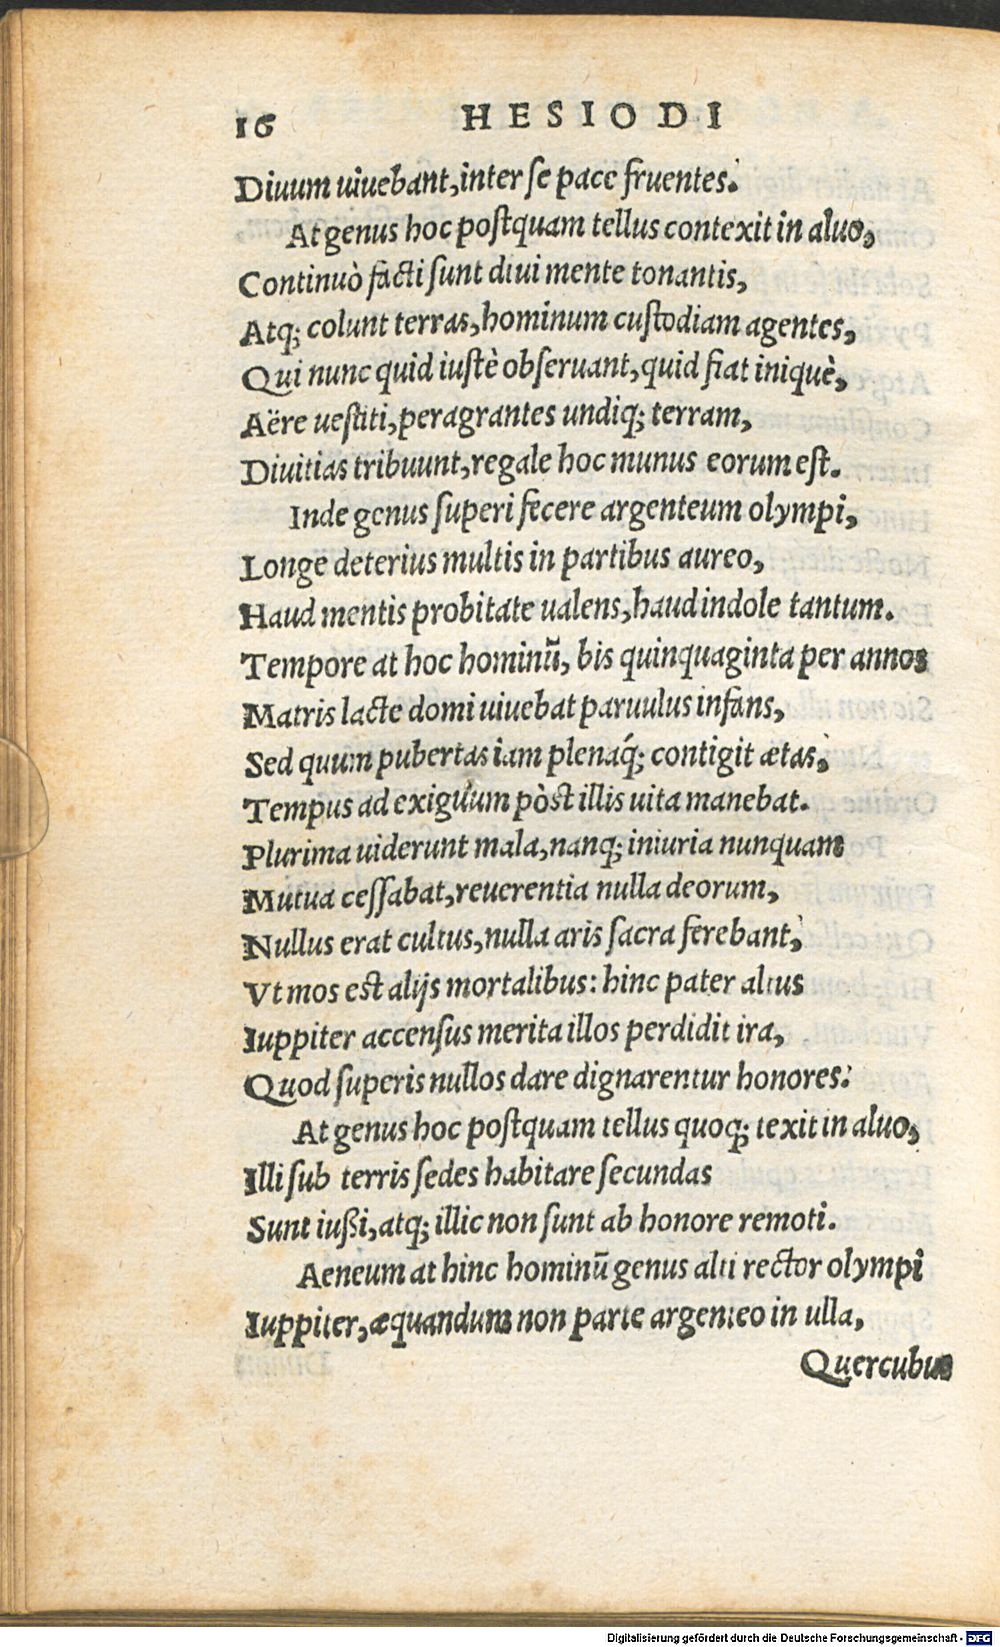 16 HESIODI
Diuum uiuebant, inter se pace fruentes.
At genus hoc postquam tellus contexit in aluo,
Continuò facti sunt diui mente tonantis,
Atq; colunt terras, hominum custodiam agentes,
Qui nunc quid iustè obseruant, quid fiat iniquè,
Aëre uestiti, peragrantes undiq; terram,
Diuitias tribuunt, regale hoc munus eorum est.
Inde genus superi fecere argenteum olympi,
Longe deterius multis in partibus aureo,
Haud mentis probitate ualens, haud indole tantum.
Tempore at hoc hominũ, bis quinquaginta per annos
Matris lacte domi uiuebat paruulus infans,
Sed quum pubertas iam plenaq́; contigit ætas,
Tempus ad exiguum pòst illis uita manebat.
Plurima uiderunt mala, nanq; iniuria nunquam
Mutua cessabat, reuerentia nulla deorum,
Nullus erat cultus, nulla aris sacra ferebant,
Vt mos est alijs mortalibus: hinc pater altus
Iuppiter accensus merita illos perdidit ira,
Quod superis nullos dare dignarentur honores.
At genus hoc postquam tellus quoq; texit in aluo,
Illi sub terris sedes habitare secundas
Sunt iußi, atq; illic non sunt ab honore remoti.
Aeneum at hinc hominũ genus alti rector olympi
Iuppiter, æquandum non parte argenteo in ulla,
Quercubus
Digitalisierung gefördert durch die Deutsche Forschungsgemeinschaft - DFG